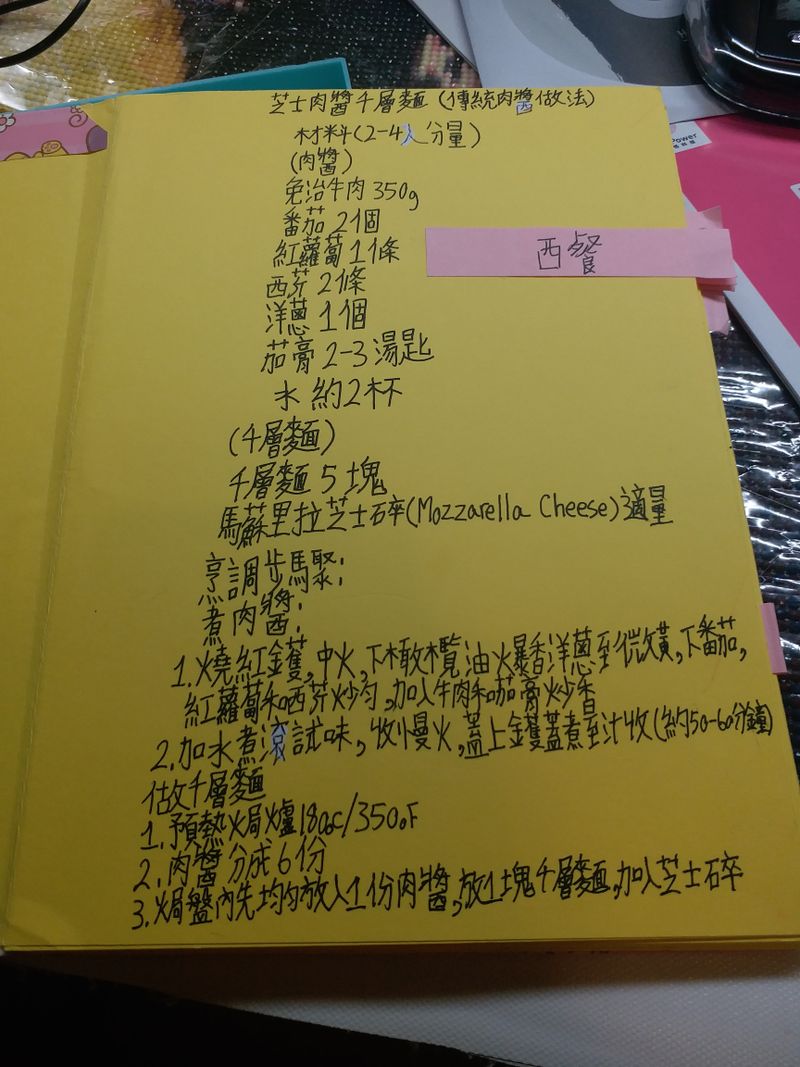 芝士肉醬千層麵(傳統肉醬做法)
材料(2-4人分量)
(肉醬)
免治牛肉350g
番茄2個
紅蘿蔔1條
西餐
西芹2條
洋蔥1個
茄膏2-3湯匙
水約2杯
(千層麵)
千層麵5塊
馬蘇里拉芝士碎(Mozzarella Cheese)適量
烹調步驟:
煮肉醬:
1.燒紅鑊,中火,下橄欖油火爆香洋蔥至微黃,下番茄,
紅蘿蔔和西芹炒勻,加入牛肉和茄膏炒香
2.加水煮滾試味,收慢火,蓋上鑊蓋煮至汁收(約50-60分鐘)
做千層麵
1.預熱焗爐180oc/350oF
2.肉醬分成6份
3.焗盤內先均勻放入1份肉醬,放1塊千層麵,加入芝士碎
Power